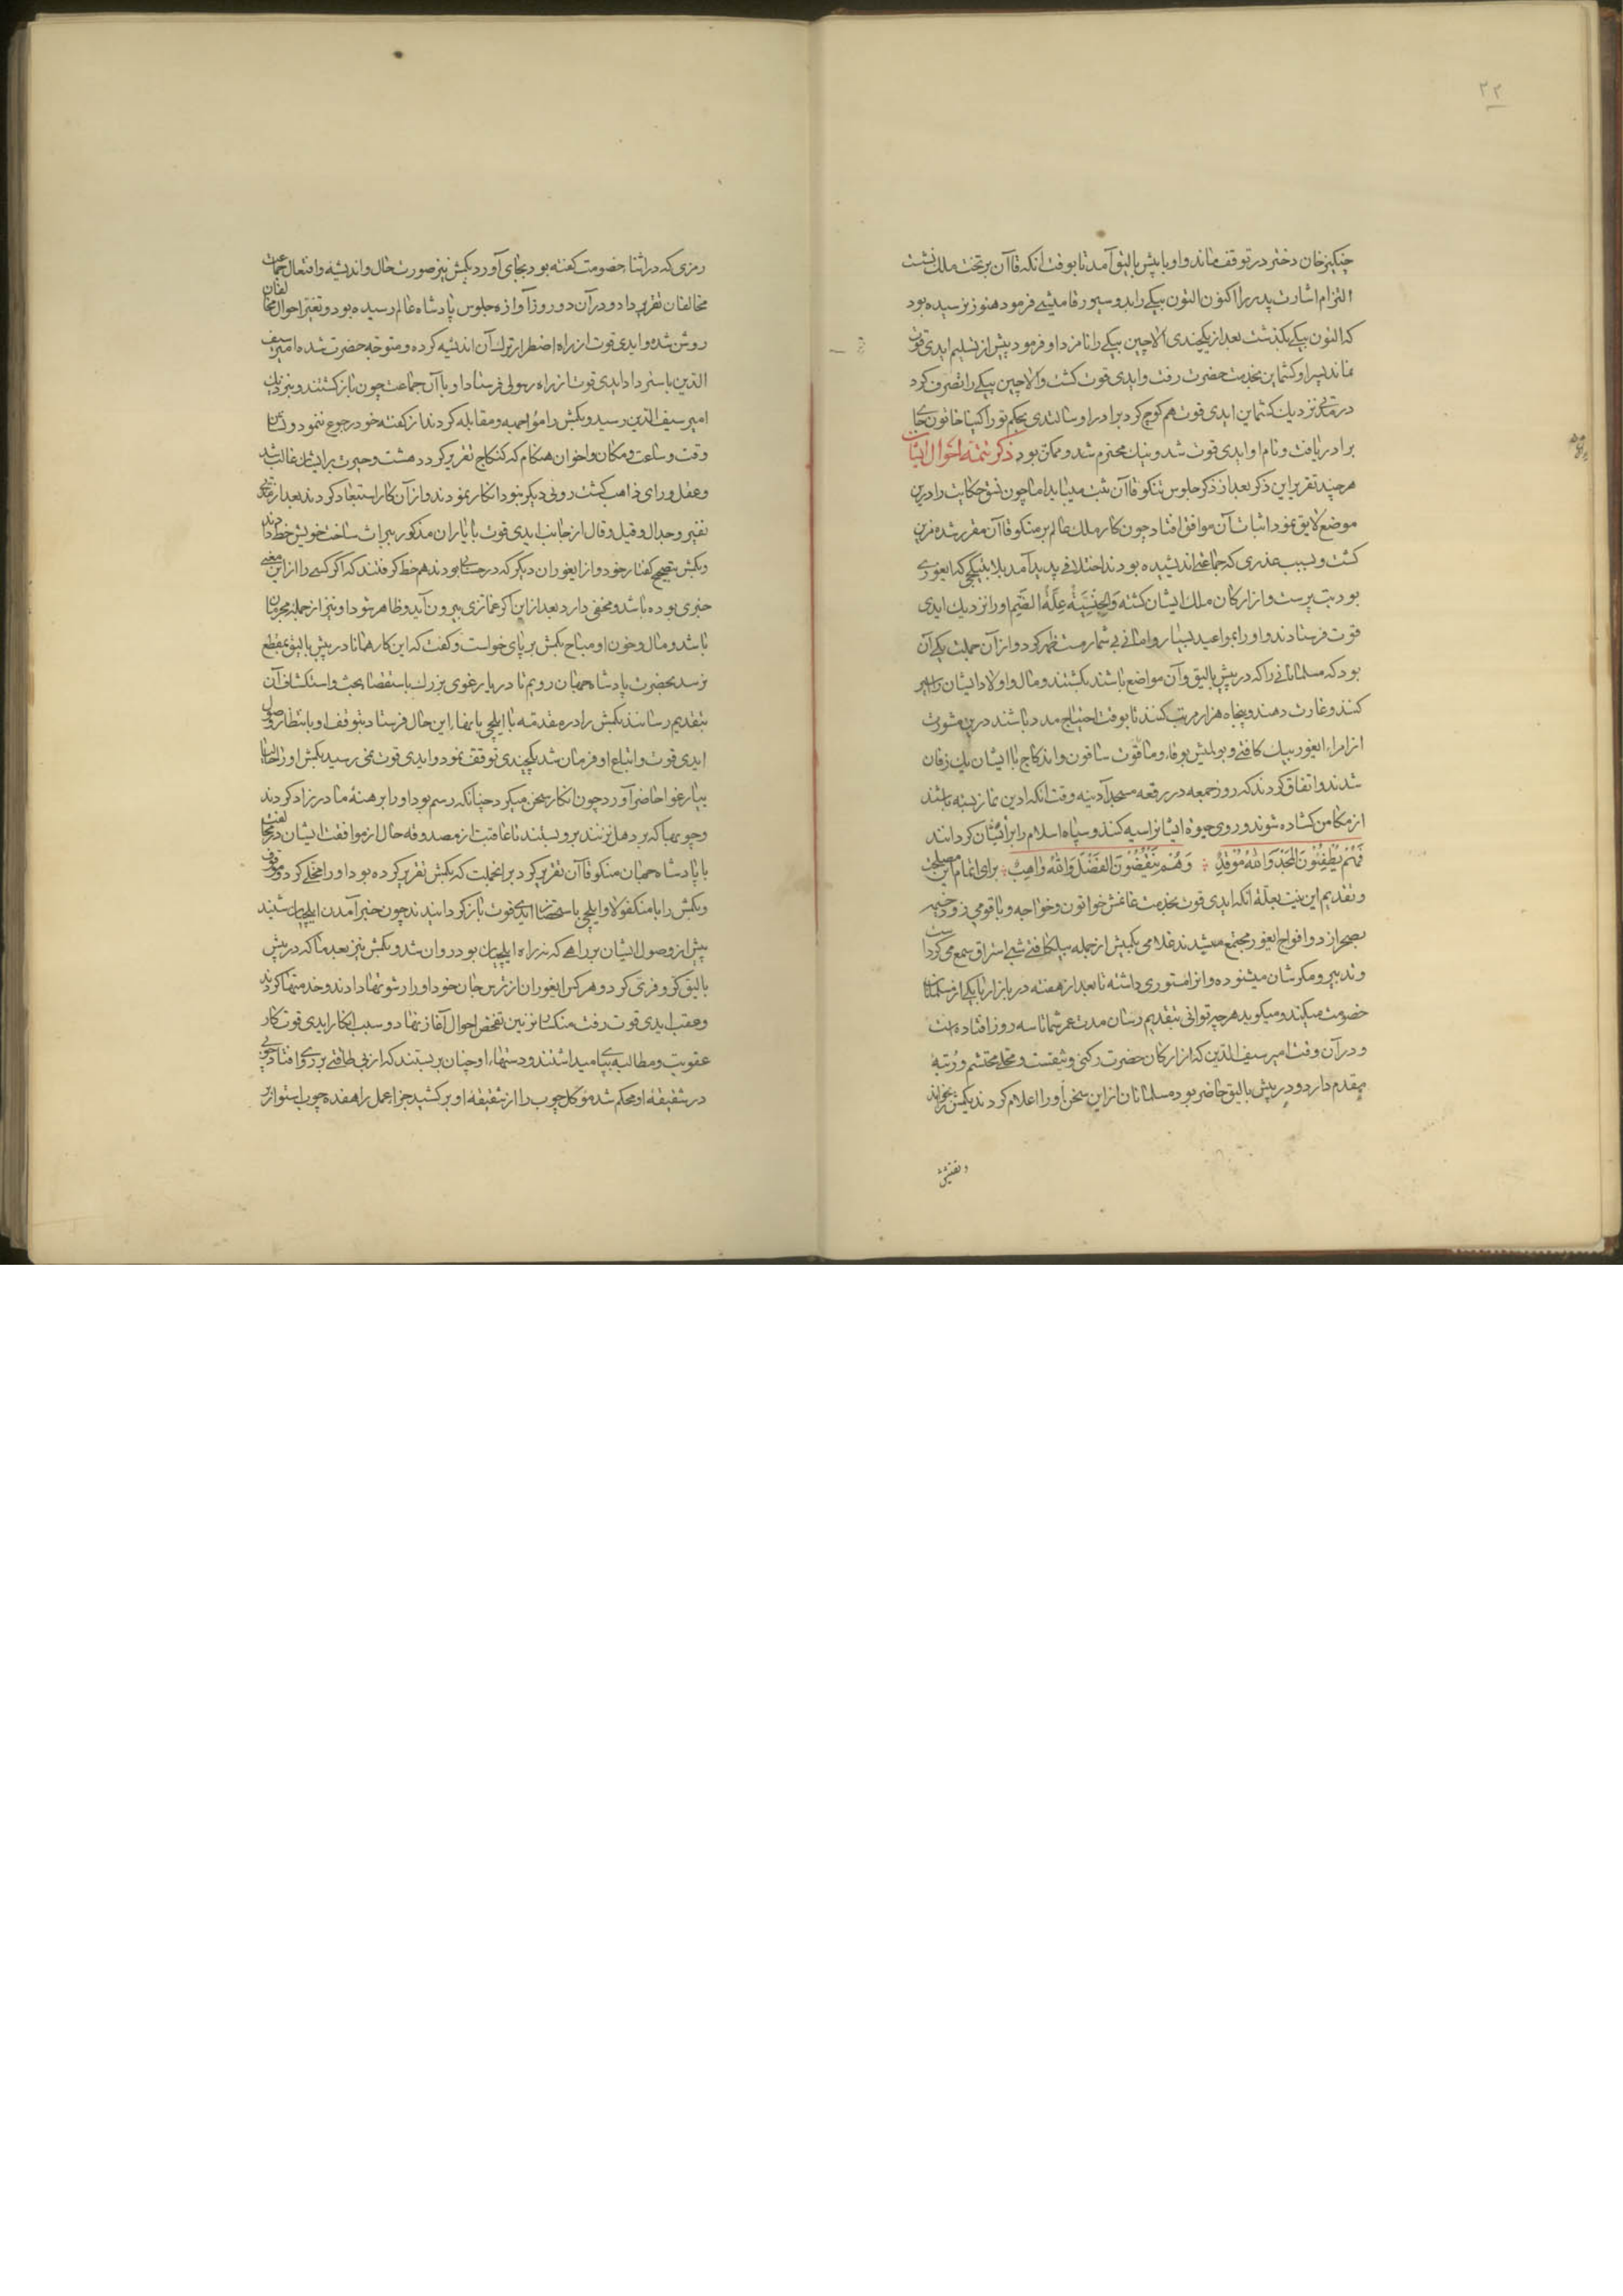 ۲۲
چنکیز خان دختر در توقف ماند و او با بیش بالیق آمد تا بوقت انکه قاآن بر تخت ملک نشست
التزام اشارت پدر را اکنون التون بیکی را بدو سیورقامیشی فرمود هنوز نرسیده بود
که التون بیکی بکذشت بعد از یکچندی الاجین بیکی را نامزد او فرمود پیش از تسلیم ایدی قوت
نماند پسر او کشماین بخدمت حضرت رفت و ایدی قوت کشت و الاجین بیکی را تصرف کرد
در مدتی نزدیک کشماین ایدی قوت هم کوچ کرد برادر او سالندی بحکم توراکینا خاتون جای
برادر یافت و نام او ایدی قوت شد و نیک محترم شد و ممکن بود ذکر تتمه احوال ایشان
هر چند تقریر این ذکر بعد از ذکر جلوس منکو قاآن ثبت میباید اما چون نسق حکایت را درین
موضع لایق نمود اثبات آن موافق افتاد چون کار ملک عالم بر منکو قاآن مقرر شده مزین
کشت و بسبب عذری که جماعتی اندیشیده بودند اختلافی پدید آمد بلا بیتیکچی که ایغوری
بود بت پرست و از ارکان ملک ایشان کشته وَالجِنْسِیَّةُ عِلَّةُ الضَّمِ او را نزدیک ایدی
قوت فرستادند و او را بمواعید بسیار و امانی بی شمار مستظهر کرد و از آن جملت یکی آن
بود که مسلمانانی را که در بیش بالیق و آن مواضع باشند بکشتند و مال و اولاد ایشان را اسیر
کنند و غارت دهند و پنجاه هزار مرد مرتب کنند تا بوقت احتیاج مدد باشند درین مشورت
از امراء ایغور بیلکا فتی و بولمیش بوقا و ماقوت ساقون و ایدکاج با ایشان یک زفان
شدند و اتفاق کردند که روز جمعه در رقعه مسجد آدینه وقت انکه ادین نماز بسته باشند
از مکامن کشاده شوند و روی حیوة ایشانرا سیه کنند و سپاه اسلام را برایشان کردانند
فَهُمْ یُطْفِئُوْنَ المَجْدَ وَاللّهُ مُوْقِدٌ وَهُمْ یَنْقُصُوْنَ الفَضْلَ وَاللّهُ وَاهِبٌ برای اتمام این مصلحت
و تقدیم این نیت بعلة انکه ایدی قوت بخدمت غایمش خواتون و خواجه و باقو می‌رود خیمه
بصحرا زد و افواج ایغور مجتمع میشدند غلامی بکمیش از جمله بیلکا فتی شبی استراق سمعی کرداست
و تدبیر و مکر شان میشنوده و انرا مستوری داشته تا بعد از هفته در بازار با یکی از مسلمانان
خصومت میکند و میکوید هر چه توانی بتقدیم رسان مدت عمر شما تا سه روز افتاده است
و در آن وقت امیر سیف الدین که از ارکان حضرت رکنی وثیقست و محلی محتشم و رُتبهٔ
مقدم دارد و در بیش بالیق حاضر بود مسلمانان از این سخن او را اعلام کردند بکمش را بخواند
و تفتیش
رمزی که در اثنا خصومت کفته بود بجای آورد بکمش نیز صورت حال و اندیشه و افتعال جماعت
مخالفان تقریر داد و در آن دو روز آوازه جلوس پادشاه عالم رسیده بود و تغیر احوال مخالفان
روشن شده و ایدی قوت از راه اضطرار ترک آن اندیشه کرده و متوجه حضرت شده امیر سیف
الدین باسترداد ایدی قوت از راه رسولی فرستاد او با آن جماعت چون باز کشتند و بنزدیک
امیر سیف الدین رسید و بکمش را مواجهه و مقابله کردند از کفته خود رجوع ننمود و نشان
وقت و ساعت و مکان و اخوان هنکام که کنکاج تقریر کرد دهشت و حیرت بر ایشان غالب شد
و عقل و رای ذاهب کشت روئی دیکر نبود انکار نمودند و از آن کار استبعاد کردند بعد از مدتی
نفیر و جدال و قیل و قال از جانب ایدی قوت با یاران مذکور ببرات ساحت خویش خط دادند
و بکمش بتصحیح کفتار خود و از ایغوران دیکر که در حساب بودند هم خط کرفتند که اکر کسی را از این معنی
خبری بوده باشد و مخفی دارد بعد از این اکر غمازی بیرون آید و ظاهر شود او نیز از جمله مجرمان
باشد و مال و خون او مباح بکمش بر پای خواست و کفت که این کار همانا در بیش بالیق بمقطع
نرسد بحضرت پادشاه جهان رویم تا در یارغوی بزرک باستقصا بحث و استکشاف آن
بتقدیم رسانند بکمش را در مقدمه با ایلچی بانهاء این حال فرستاد بتوقف او بانتظار وصول
ایدی قوت و اتباع او فرمان شد یکچندی توقف نمود و ایدی قوت نمی رسید بکمش او را
بیارغو حاضر آورد چون انکار سخن میکرد چنانکه رسم بود او را برهنهٔ مادرزاد کردند
و چوبها که بر دهل زنند برو بستند تا عاقبت از مصدوقه حال از موافقت ایشان در مخالفت
با پادشاه جهان منکو قاآن تقریر کرد بر انجملت که بکمش تقریر کرده بود او را مخلی کرد و موقوف
و بکمش را با منکفولاد ایلچی باستحضار ایدی قوت باز کردانیدند چون خبر آمدن ایلچیان شنید
پیش از وصول ایشان براهی که نه راه ایلچیان بود روان شد و بکمش نیز بعد ما که در بیش
بالیق کرّ و فرّی کرد و هر کس ایغوران از ترس جان خود او را رشوتها دادند و خدمتها کردند
و عقب ایدی قوت رفت منکاسار نوین تفحص احوال آغاز نهاد و سبب انکار ایدی قوت کار
عقوبت و مطالبه بپا میداشتند و دستهاء او چنان بربستند که از بی طاقتی بر روی افتاد چوبی
در شقیقهٔ او محکم شد موکل چوب را از شقیقهٔ او بر کشید جزاء عمل را هفده چوب استوار بر